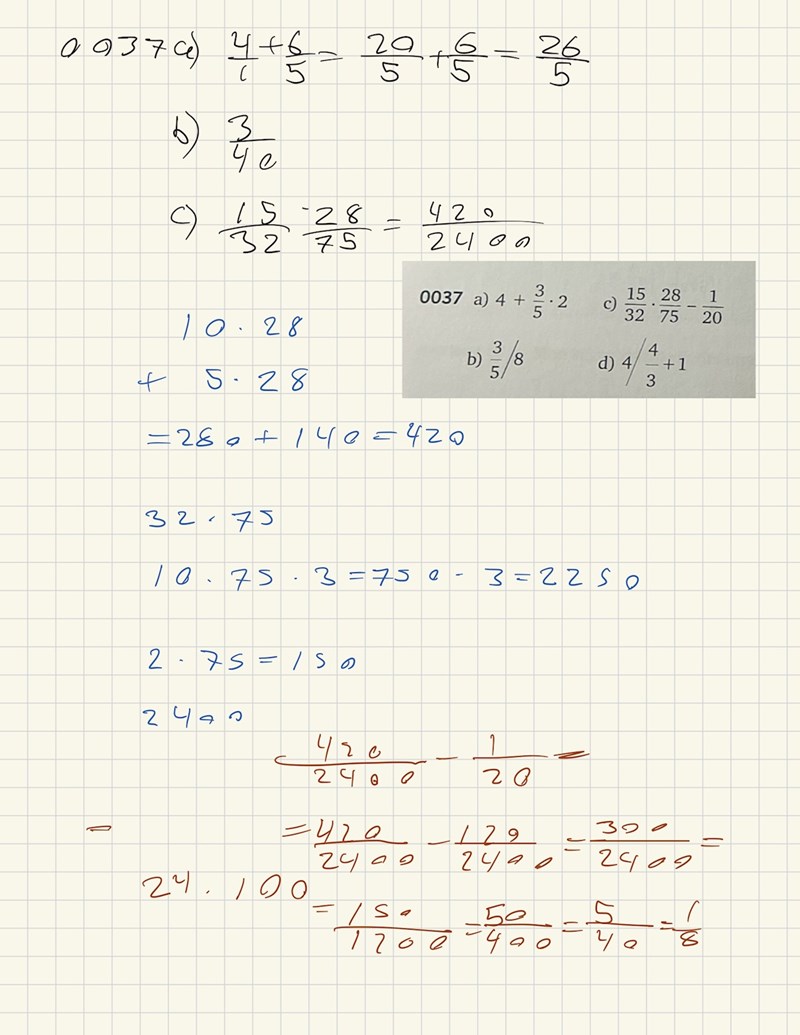 0037 a) 4/1 + 6/5 = 20/5 + 6/5 = 26/5
b) 3/40
c) 15/32 · 28/75 = 420/2400
0037 a) 4 + 3/5 · 2 c) 15/32 · 28/75 − 1/20
b) 3/5 / 8 d) 4 / 4/3 + 1
10 · 28
+ 5 · 28
= 280 + 140 = 420
32 · 75
10 · 75 · 3 = 750 · 3 = 2250
2 · 75 = 150
2400
420/2400 − 1/20 =
− = 420/2400 − 120/2400 = 300/2400 =
24 · 100
= 150/1200 = 50/400 = 5/40 = 1/8